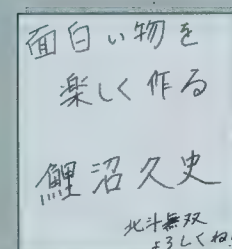 面白い物を
楽しく作る
鯉沼久史
北斗無双
よろしくね